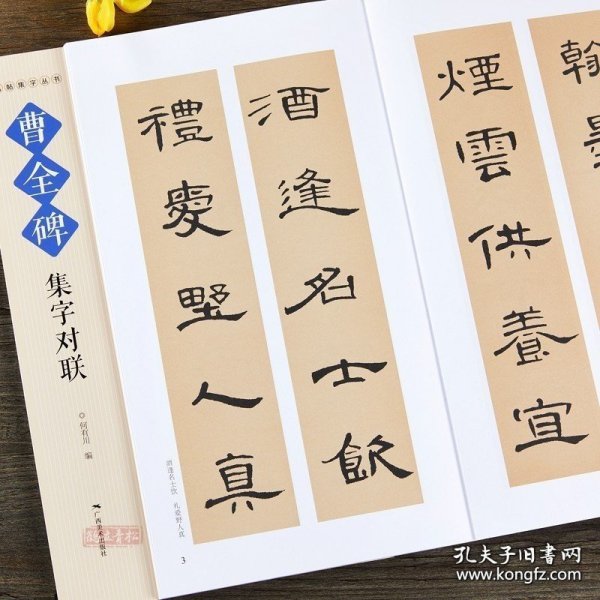 帖集字丛书
曹全碑
集字对联
何有川 编
广西美术出版社
酒逢名士飲
禮愛野人真
酒逢名士饮 礼爱野人真
3
煙雲供養宜
翰墨
孔夫子旧书网
www.kongfz.com